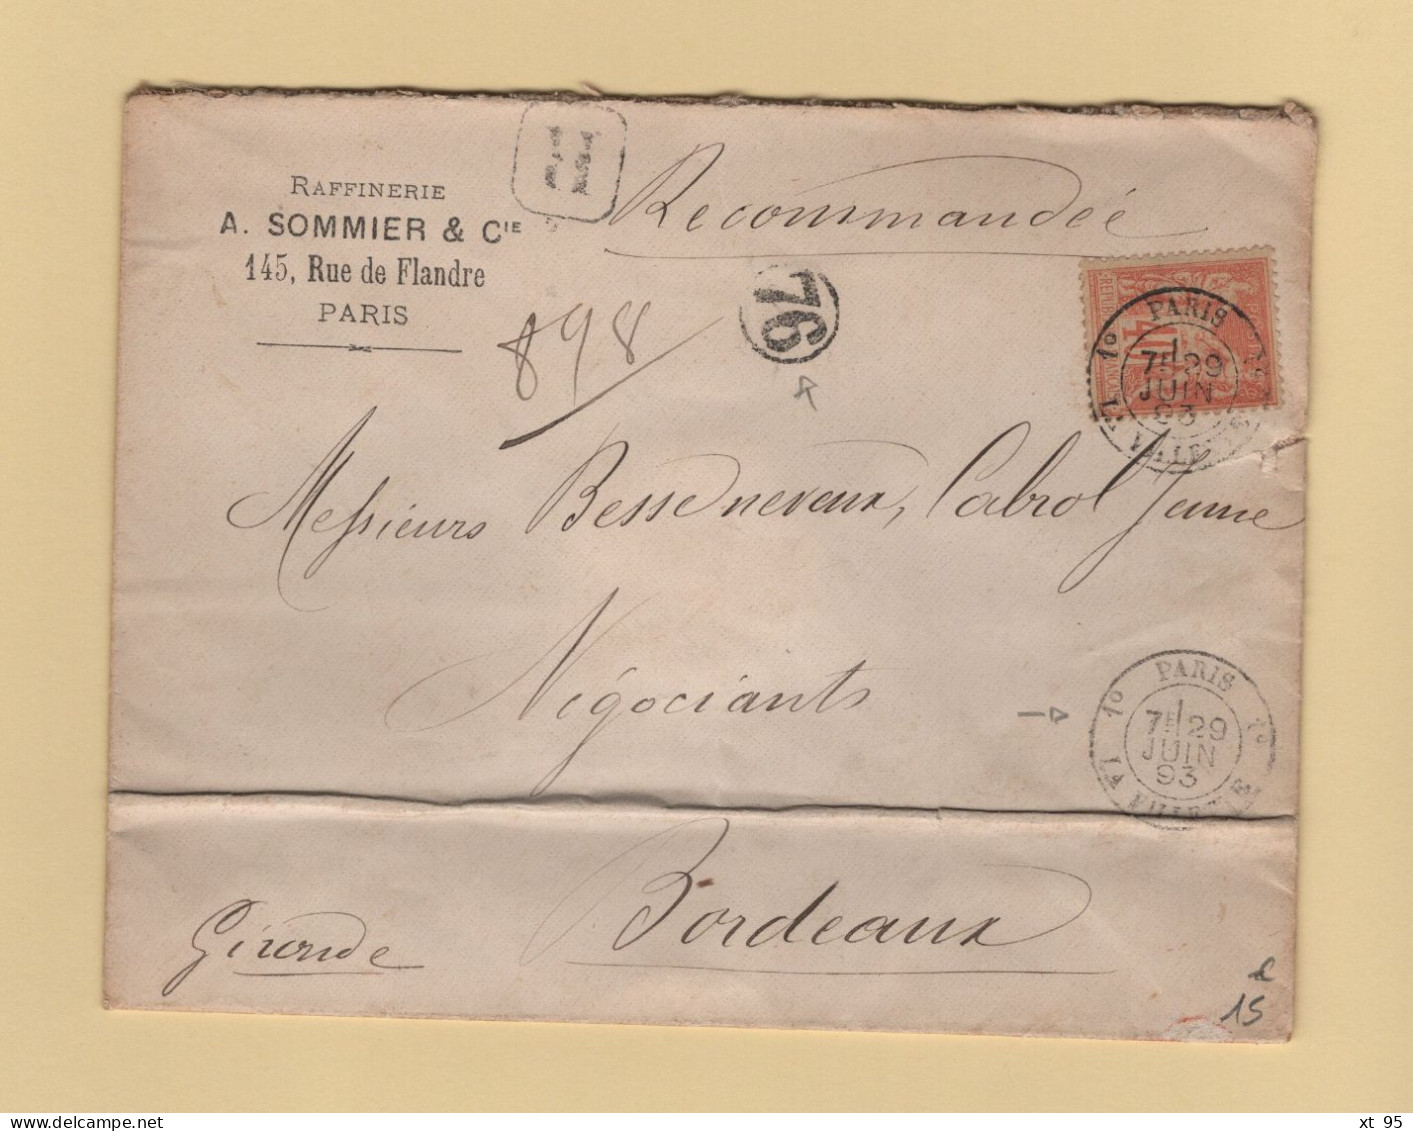 RAFFINERIE
A. SOMMIER & CIE
145, Rue de Flandre
PARIS
R
Recommandée
898
76
40
PARIS
1º
7E 29
JUIN
93
LA VILLETTE
Messieurs Besse neveux, Cabrol Jeune
Négociants
PARIS
1º
7E 29
JUIN
93
LA VILLETTE
Bordeaux
Gironde
15
xt 95